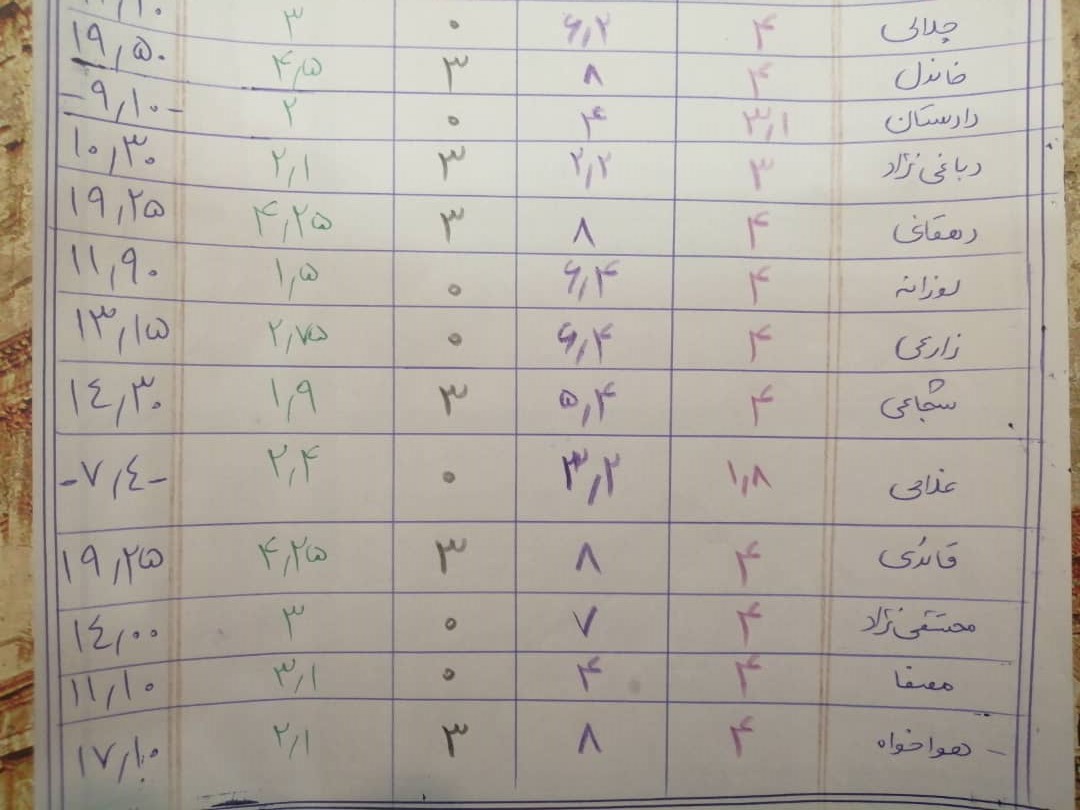 چلالی ۴ ۶٫۲ ۰ ۳
خاندل ۴ ۸ ۳ ۴٫۵ ۱۹٫۵۰
دادستان ۳٫۱ ۴ ۰ ۲ -۹٫۱۰-
دباغی نژاد ۳ ۲٫۲ ۳ ۲٫۱ ۱۰٫۳۰
دهقانی ۴ ۸ ۳ ۴٫۲۵ ۱۹٫۲۵
۴ ۶٫۴ ۰ ۱٫۵ ۱۱٫۹۰
زارعی ۴ ۶٫۴ ۰ ۲٫۷۵ ۱۳٫۱۵
شجاعی ۴ ۵٫۴ ۳ ۱٫۹ ۱٤٫۳۰
غلامی ۱٫۸ ۳٫۲ ۰ ۲٫۴ -۷٫٤-
قائدی ۴ ۸ ۳ ۴٫۲۵ ۱۹٫۲۵
محتشمی نژاد ۴ ۷ ۰ ۳ ۱٤٫۰۰
مصفا ۴ ۴ ۰ ۳٫۱ ۱۱٫۱۰
- هواخواه ۴ ۸ ۳ ۲٫۱ ۱۷٫۱۰